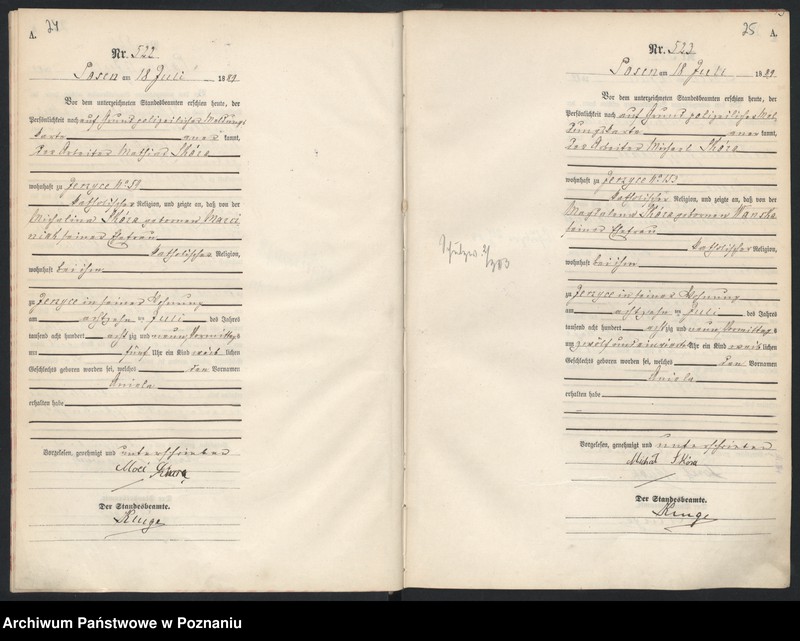 A. 24
Nr. 522
Posen am 18 Juli 1889
Vor dem unterzeichneten Standesbeamten erschien heute, der
Persönlichkeit nach auf Grund polizeilicher Meldungs
karte aner kannt,
der Arbeiter Mathias Skóra
wohnhaft zu Jerzyce No 54
katholischer Religion, und zeigte an, daß von der
Michalina Skóra geborenen Marci
niak seiner Ehefrau
katholischer Religion,
wohnhaft bei ihm
zu Jerzyce in seiner Wohnung
am achtzehn ten Juli des Jahres
tausend acht hundert acht zig und neun, Vormittags
um fünf Uhr ein Kind weib lichen
Geschlechts geboren worden sei, welches den Vornamen
Aniela
erhalten habe
Vorgelesen, genehmigt und unterschrieben
Maci Skura
Der Standesbeamte.
Kruge
25 A.
Nr. 523
Posen am 18 Juli 1889
Vor dem unterzeichneten Standesbeamten erschien heute, der
Persönlichkeit nach auf Grund polizeilicher Mel-
dungskarte aner kannt,
der Arbeiter Michael Skóra
wohnhaft zu Jerzyce No 153
katholischer Religion, und zeigte an, daß von der
Magdalena Skóra geborenen Wanska
seiner Ehefrau
katholischer Religion,
wohnhaft bei ihm
zu Jerzyce in seiner Wohnung
am achtzehn ten Juli des Jahres
tausend acht hundert acht zig und neun, Vormittags
um zwölf und einviertel Uhr ein Kind weib lichen
Geschlechts geboren worden sei, welches den Vornamen
Aniela
erhalten habe
Vorgelesen, genehmigt und unterschrieben
Michał Skóra
Der Standesbeamte.
Kruge
Archiwum Państwowe w Poznaniu